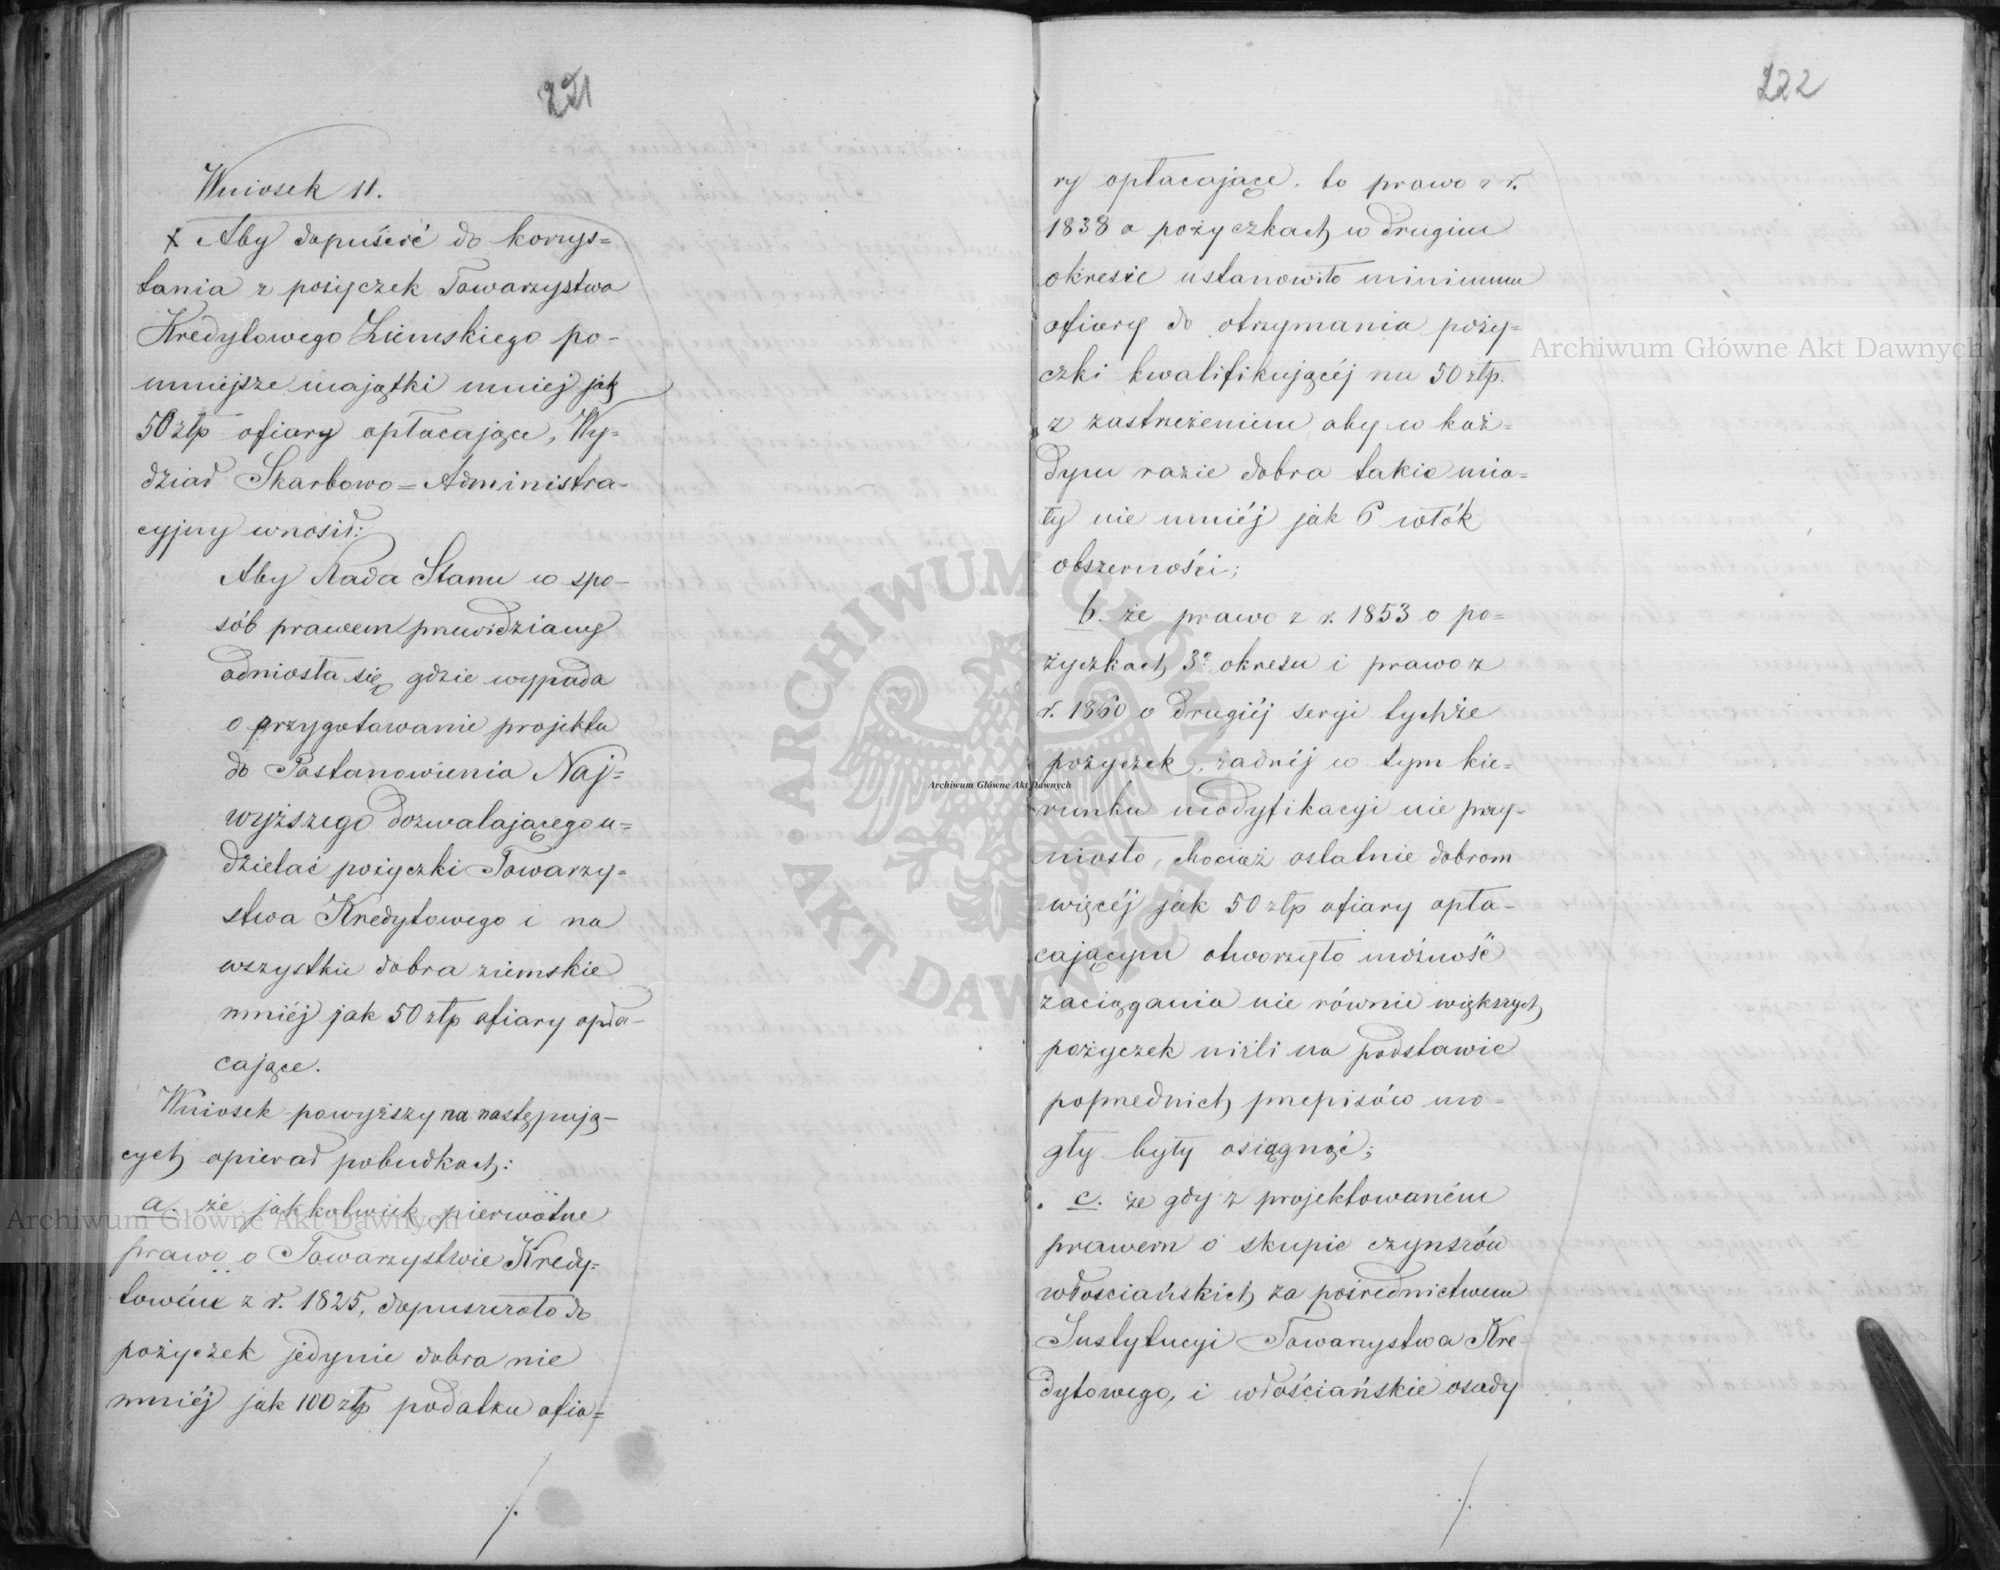 221
Wniosek 11.
Aby dopuścić do korzys=
tania z pożyczek Towarzystwa
Kredytowego Ziemskiego po-
mniejsze majątki mniej jak
50 złp ofiary opłacające, Wy=
dział Skarbowo=Administra-
cyjny wnosił:
Aby Rada Stanu w spo-
sób prawem przewidziany
odniosła się gdzie wypada
o przygotowanie projektu
do Postanowienia Naj=
wyższego dozwalającego u=
dzielać pożyczki Towarzy=
stwa Kredytowego i na
wszystkie dobra ziemskie
mniéj jak 50 złp ofiary opła-
cające.
Wniosek powyższy na następują-
cych opierał pobudkach:
a. że jakkolwiek pierwotne
prawo o Towarzystwie Kredy=
towém z r. 1825, dopuszczało do
pożyczek jedynie dobra nie
mniéj jak 100 złp podatku ofia=
./.
222
ry opłacające, to prawo z r.
1838 o pożyczkach w drugim
okresie ustanowiło minimum
ofiary do otrzymania poży=
czki kwalifikującéj na 50 złp.
z zastrzeżeniem aby w każ=
dym razie dobra takie mia=
ły nie mniéj jak 6 włók
obszerności;
b. że prawo z r. 1853 o po=
życzkach 3º okresu i prawo z
r. 1860 o drugiéj seryi tychże
pożyczek, żadnéj w tym kie=
runku modyfikacyi nie przy-
niosło, chociaż ostatnie dobrom
więcéj jak 50 złp ofiary opła-
cającym otworzyło możność
zaciągania nie równie większych
pożyczek niźli na podstawie
poprzednich przepisów mo=
gły były osiągnąć;
c. że gdy z projektowaném
prawem o skupie czynszów
włościańskich za pośrednictwem
Instytucyi Towarzystwa Kre-
dytowego, i włościańskie osady
./.
Archiwum Główne Akt Dawnych
Archiwum Główne Akt Dawnych
Archiwum Główne Akt Dawnych
ARCHIWUM GŁÓWNE AKT DAWNYCH